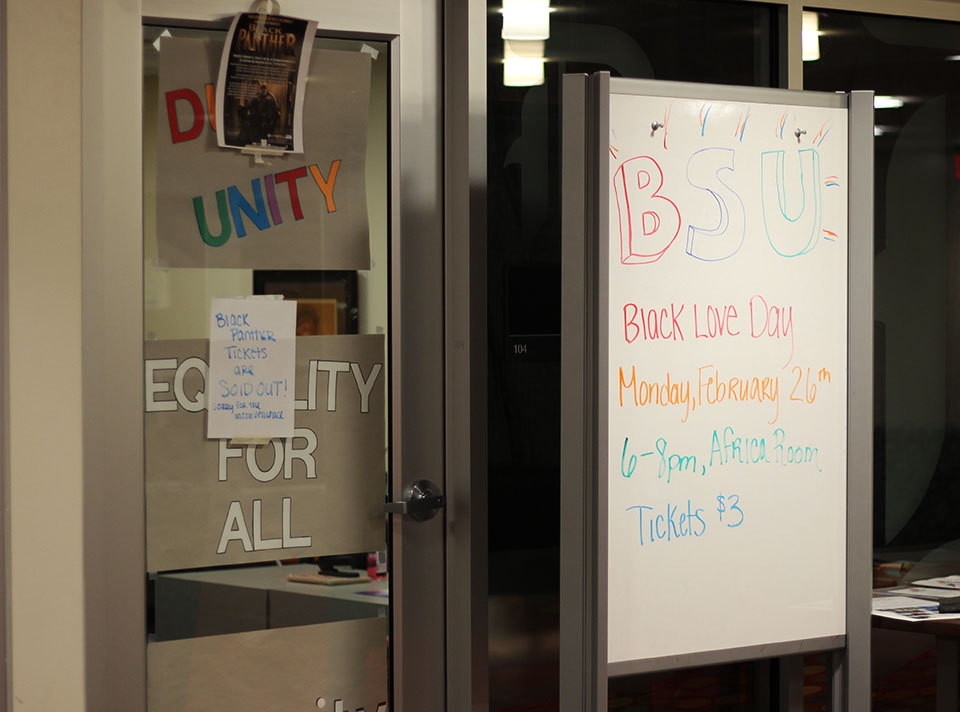 BLACK
PANTHER
DU
UNITY
Black
Panther
Tickets
are
SOLD OUT!
sorry for the
inconvenience
EQ LITY
FOR
ALL
104
BSU
Black Love Day
Monday, February 26th
6-8pm, Africa Room
Tickets $3